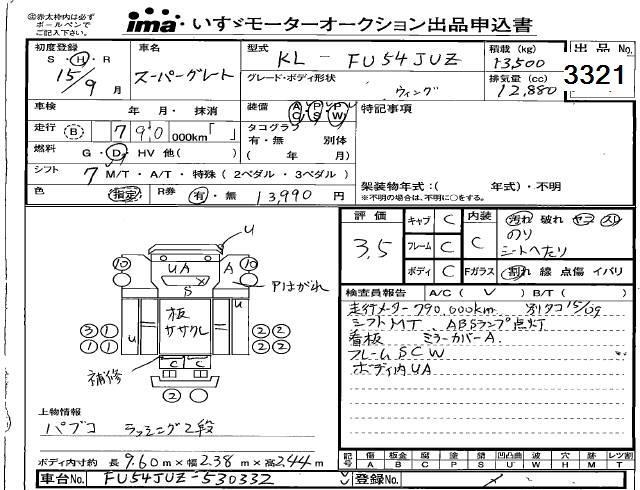 ※赤太枠内は必ずボールペンでご記入下さい
ima いすゞモーターオークション出品申込書
初度登録 S・H・R 15/9 月
車名 スーパーグレート
型式 KL-FU54JUZ
グレード・ボディ形状 ウィング
積載 (kg) 13,500
排気量 (cc) 12,880
出品No. 3321
車検 年 月・抹消
走行 (B) 790 000km「 」
燃料 G・D・HV 他( )
シフト 7 M/T・A/T・特殊(2ペダル・3ペダル)
色 (指定) R券 有・無 13,990 円
装備 AC PS PW
タコグラフ 有・無 別体 ( 年 月)
特記事項
架装物年式:( 年式)・不明
※不明の場合は、不明に○をする。
評価 3.5
キャブ C
フレーム C
ボディ C
内装 C 汚れ 破れ ヤニ スリ
のり
シートへたり
Fガラス 割れ 線 点傷 イバリ
検査員報告 A/C( V ) B/T( )
走行メーター790,000km 別タコ15/09
シフトMT、ABSランプ点灯
看板 ミラーカバーA
フレームSCW
ボディ内UA
U
10 UA A 10
S
Pはがれ
板
ササクレ
U U
3 1 2 2
1 1 2 2
C C
補修
2
上物情報
パブコ ラッシング2段
ボディ内寸約 長9.60m×幅2.38m×高2.44m
記号 傷 A 板金 B 腐 C 塗 P 錆 S 凹凸曲 U 波 W 穴 H 跡 M レツ割 T
車台No. FU54JUZ-530332
登録No.